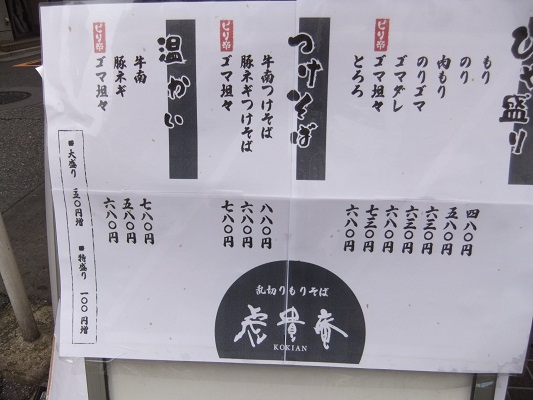 ひや盛り
もり 四八〇円
のり 五八〇円
肉もり 六三〇円
のりゴマ 六三〇円
ゴマダレ 六八〇円
ピリ辛 ゴマ坦々 七三〇円
とろろ 六八〇円
つけそば
牛南つけそば 八八〇円
豚ネギつけそば 六八〇円
ピリ辛 ゴマ坦々 七八〇円
温かい
牛南 七八〇円
豚ネギ 五八〇円
ピリ辛 ゴマ坦々 六八〇円
大盛り 五〇円増 特盛り 一〇〇円増
乱切りもりそば
虎貴庵
KOKIAN